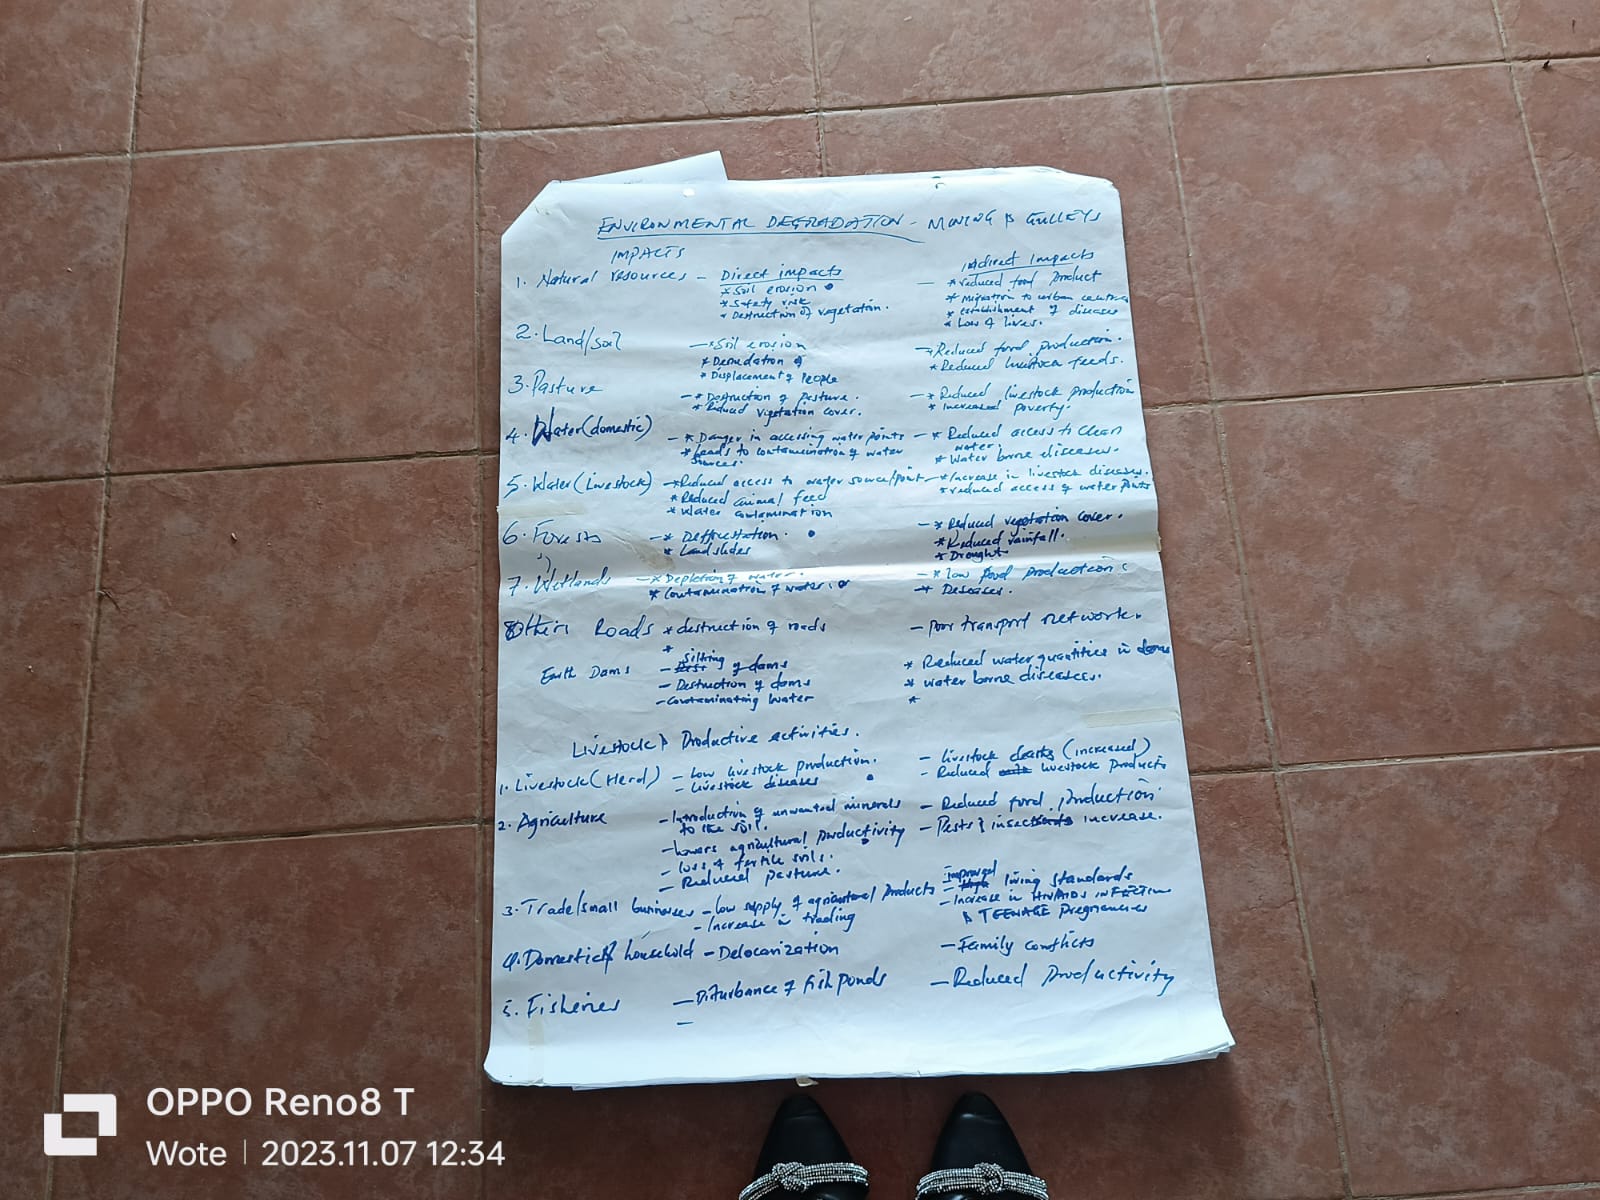 ENVIRONMENTAL DEGRADATION - MINING & GULLEYS
IMPACTS
1. Natural resources - Direct impacts
* Soil erosion
* Safety risk
* Destruction of vegetation.
Indirect impacts
- * reduced food product
* Migration to urban centres
* establishment of diseases
* Loss of lives.
2. Land/soil
- * Soil erosion
* Denudation of
* Displacement of People
- * Reduced food production.
* Reduced feeds.
3. Pasture
- * Destruction of Pasture.
* Reduced vegetation cover.
- * Reduced livestock production
* increased poverty.
4. Water (domestic)
- * Danger in accessing water points
* Leads to contamination of water
sources.
- * Reduced access to clean
water.
* Water borne diseases.
5. Water (Livestock)
- * Reduced access to water source/point
* Reduced animal feed
* Water contamination
- * Increase in livestock diseases.
* reduced access of water points
6. Forests
- * Defforestation.
* Landslides
- * Reduced vegetation cover.
* Reduced rainfall.
* Drought
7. Wetlands
- * Depletion of water.
* Contamination of water.
- * low food production
- * Diseases.
8 Others Roads * destruction of roads
*
- Poor transport network.
Earth Dams
- Silting of dams
- Destruction of dams
- Contaminating Water
* Reduced water quantities in dams
* water borne diseases.
*
Livestock & Productive activities.
1. Livestock (Herd)
- Low livestock production.
- Livestock diseases
- Livestock deaths (increased)
- Reduced livestock products
2. Agriculture
- Introduction of unwanted minerals
to the soil.
- Lowers agricultural productivity
- Loss of fertile soils.
- Reduced pasture.
- Reduced food production
- Pests & insects increase.
3. Trade/small businesses - low supply of agricultural Products
- Increase in trading
- improved living standards
- Increase in HIV/AIDS INFECTION
& TEENAGE Pregnancies
4. Domestic & household - Delocanization
- Family conflicts
5. Fisheries
- Disturbance of fish ponds
-
- Reduced Productivity
OPPO Reno8 T
Wote | 2023.11.07 12:34